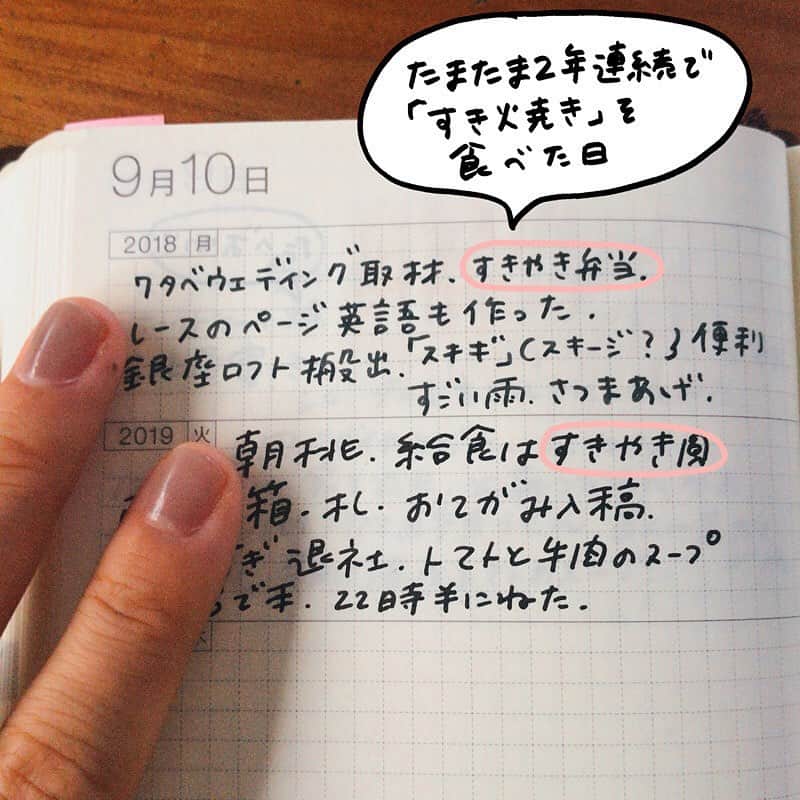 たまたま2年連続で
「すき火焼き」を
食べた日
9月10日
2018 月
ワタベウェディング取材、すきやき弁当.
レースのページ英語も作った.
銀座ロフト搬出.「スキギ」(スキージ?)便利
すごい雨.さつまあげ.
2019 火
朝桃.給食はすきやき風
箱.札.おてがみ入稿.
すぎ退社.トマトと牛肉のスープ
で〆.22時半にねた.